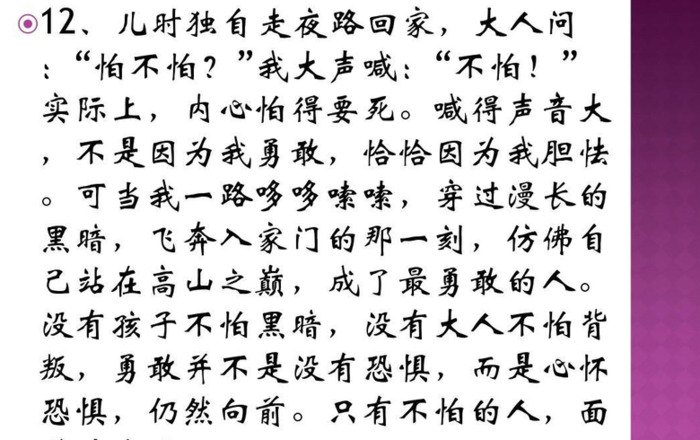 12、儿时独自走夜路回家，大人问
：“怕不怕？”我大声喊：“不怕！”
实际上，内心怕得要死。喊得声音大
，不是因为我勇敢，恰恰因为我胆怯
。可当我一路哆哆嗦嗦，穿过漫长的
黑暗，飞奔入家门的那一刻，仿佛自
己站在高山之巅，成了最勇敢的人。
没有孩子不怕黑暗，没有大人不怕背
叛，勇敢并不是没有恐惧，而是心怀
恐惧，仍然向前。只有不怕的人，面